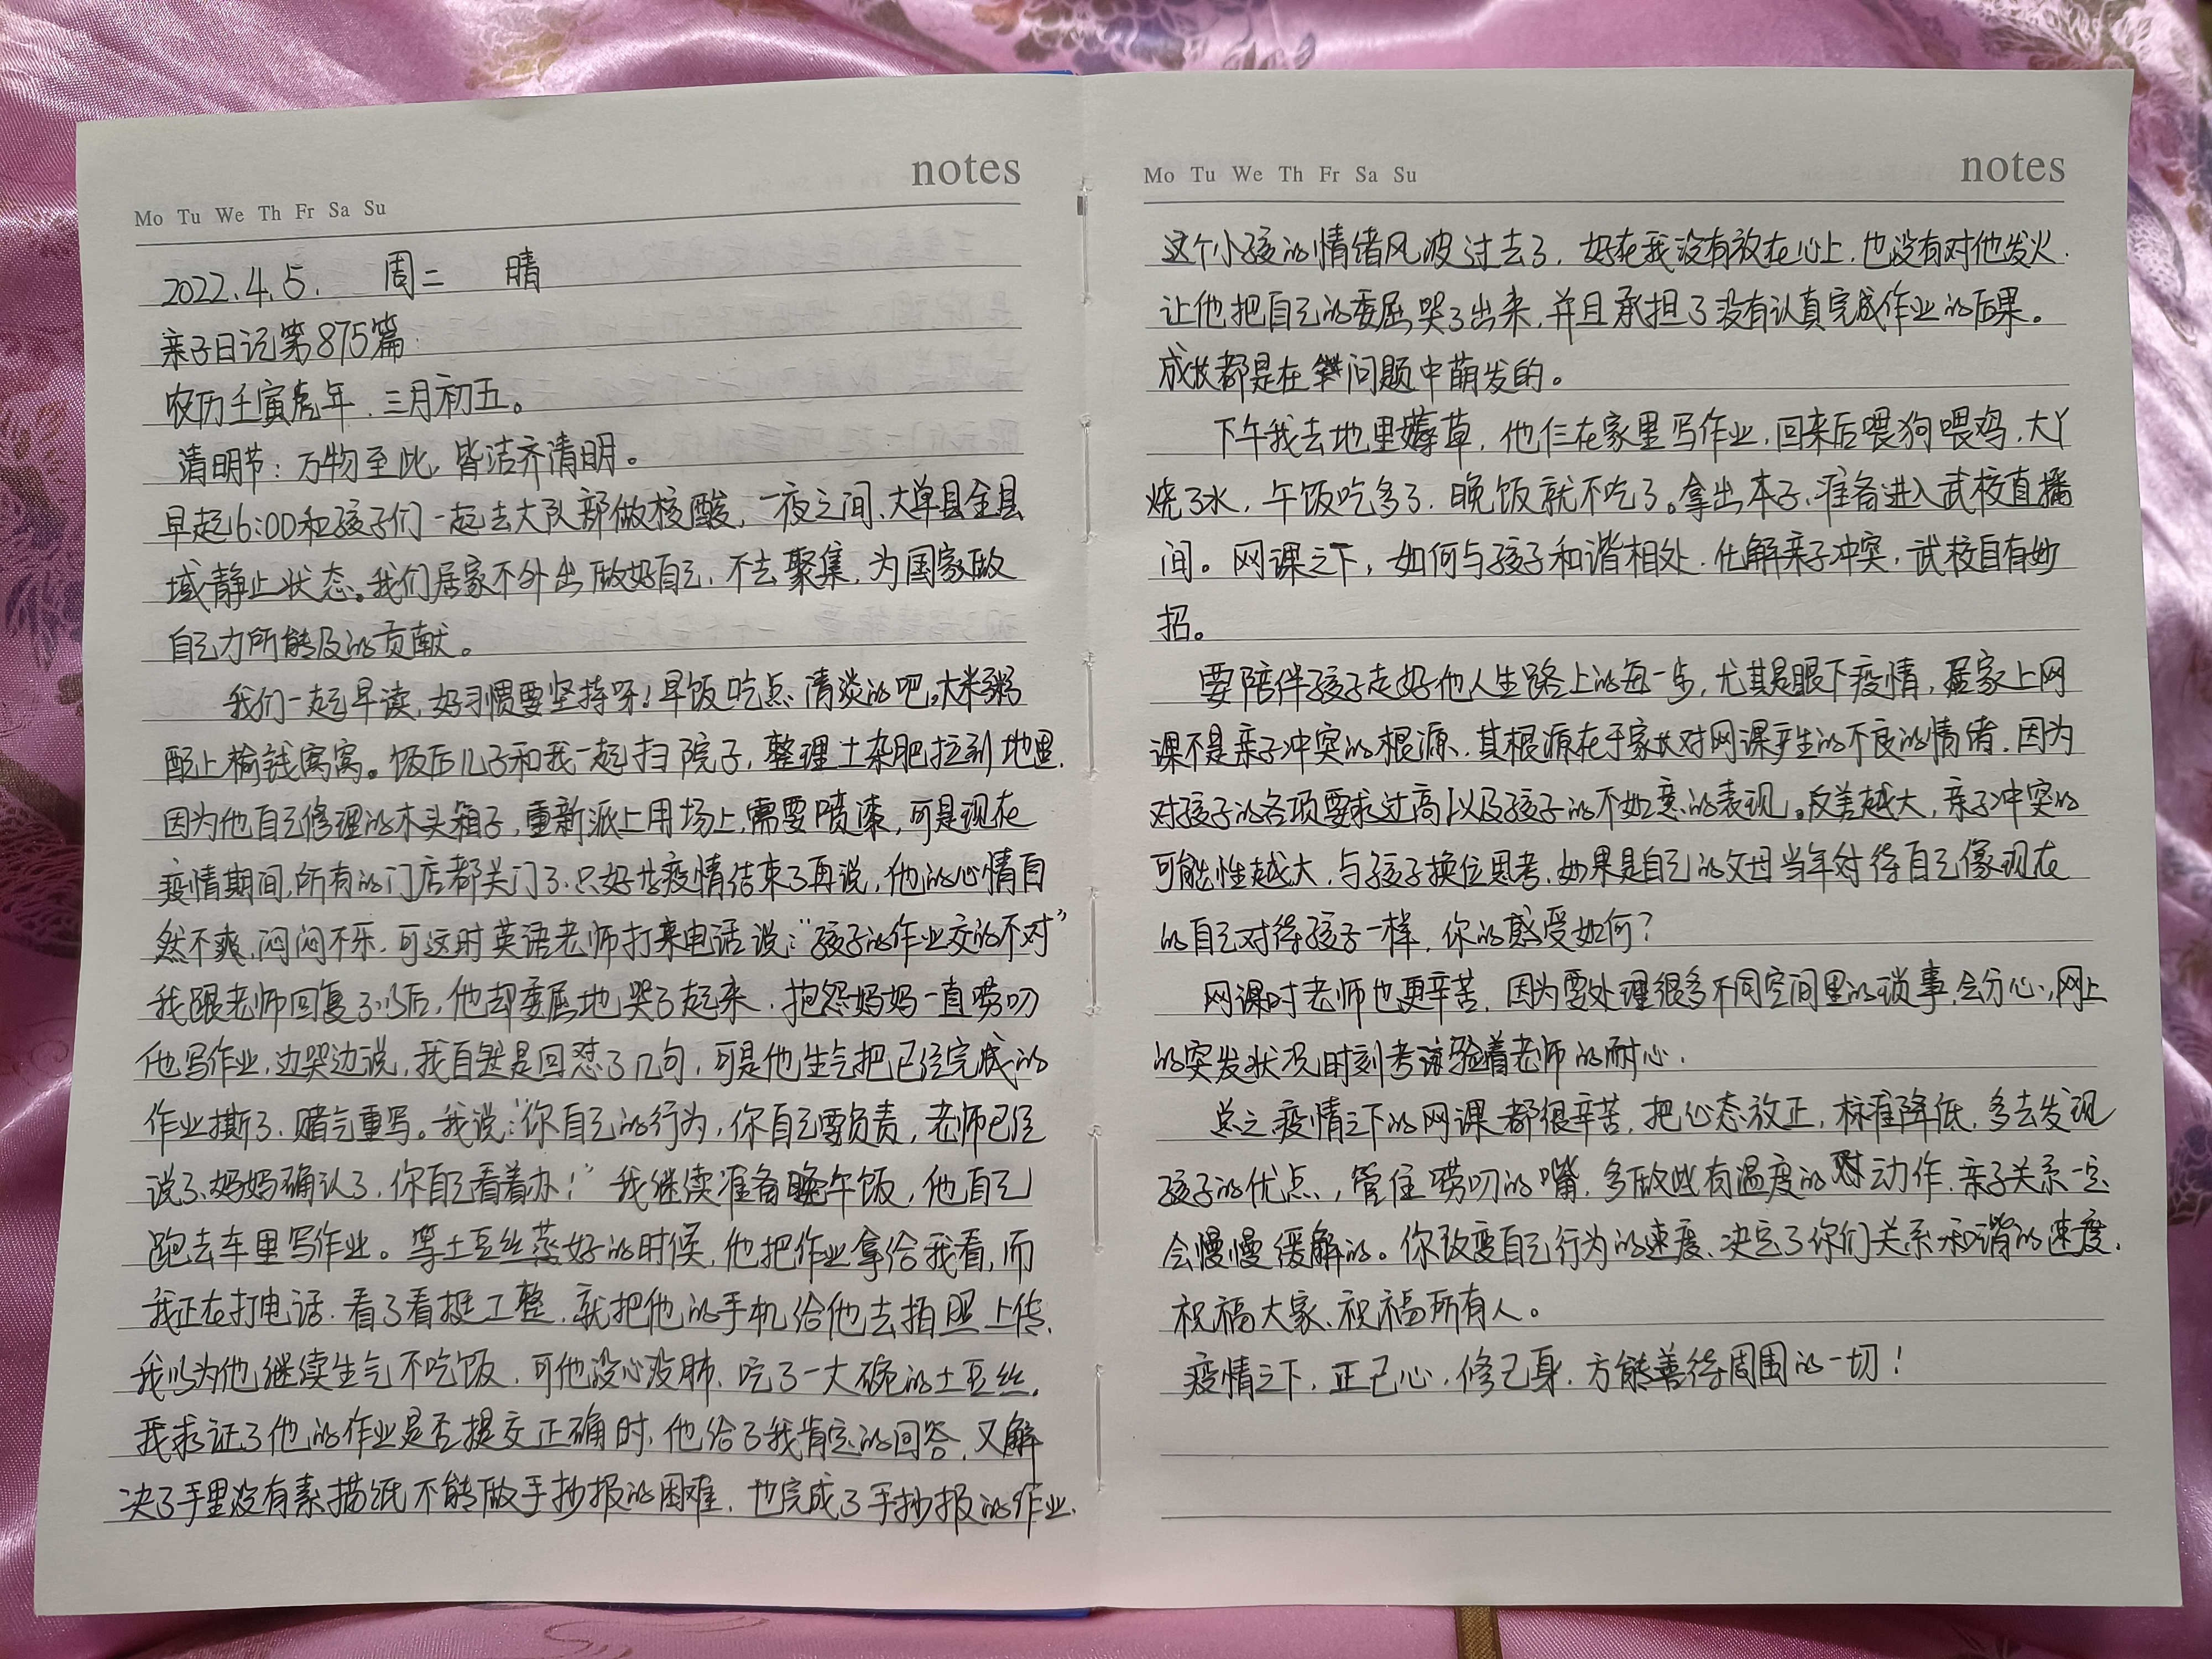 notes
Mo Tu We Th Fr Sa Su
2022.4.5. 周二 晴
亲子日记第875篇
农历壬寅虎年.三月初五。
清明节:万物至此,皆洁齐清明。
早起6:00和孩子们一起去大队部做核酸,一夜之间、大单县全县
域静止状态。我们居家不外出做好自己,不去聚集,为国家做
自己力所能及的贡献。
我们一起早读,好习惯要坚持呀!早饭吃点清淡的吧,大米粥
配上榆钱窝窝。饭后儿子和我一起扫院子,整理土杂肥拉到地里.
因为他自己修理的木头箱子,重新派上用场上,需要喷漆,可是现在
疫情期间,所有的门店都关门了.只好等疫情结束了再说,他的心情自
然不爽,闷闷不乐,可这时英语老师打来电话说:“孩子的作业交的不对”
我跟老师回复了以后,他却委屈地哭了起来.抱怨妈妈一直唠叨
他写作业,边哭边说,我自然是回怼了几句,可是他生气把已经完成的
作业撕了.赌气重写。我说:“你自己的行为,你自己要负责,老师已经
说了、妈妈确认了,你自己看着办!”我继续准备午饭,他自己
跑去车里写作业。等土豆丝蒸好的时候,他把作业拿给我看,而
我正在打电话.看了看挺工整.就把他的手机给他去拍照上传.
我以为他继续生气不吃饭.可他没心没肺.吃了一大碗的土豆丝.
我求证了他的作业是否提交正确时,他给了我肯定的回答,又解
决了手里没有素描纸不能做手抄报的困难.也完成了手抄报的作业.
notes
Mo Tu We Th Fr Sa Su
这个小孩的情绪风波过去了,好在我没有放在心上,也没有对他发火.
让他把自己的委屈哭了出来,并且承担了没有认真完成作业的后果。
成长都是在问题中萌发的。
下午我去地里薅草,他仨在家里写作业,回来后喂狗喂鸡,大丫
烧了水,午饭吃多了,晚饭就不吃了。拿出本子,准备进入武校直播
间。网课之下,如何与孩子和谐相处.化解亲子冲突,武校自有妙
招。
要陪伴孩子走好他人生路上的每一步,尤其是眼下疫情,居家上网
课不是亲子冲突的根源、其根源在于家长对网课产生的不良的情绪.因为
对孩子的各项要求过高以及孩子的不如意的表现。反差越大,亲子冲突的
可能性越大.与孩子换位思考,如果是自己的父母当年对待自己像现在
的自己对待孩子一样,你的感受如何?
网课时老师也更辛苦,因为要处理很多不同空间里的琐事,会分心,网上
的突发状况时刻考验着老师的耐心.
总之疫情之下的网课都很辛苦,把心态放正,标准降低,多去发现
孩子的优点,管住唠叨的嘴,多做些有温度的动作.亲子关系一定
会慢慢缓解的。你改变自己行为的速度、决定了你们关系和谐的速度.
祝福大家、祝福所有人。
疫情之下,正己心,修己身.方能善待周围的一切!